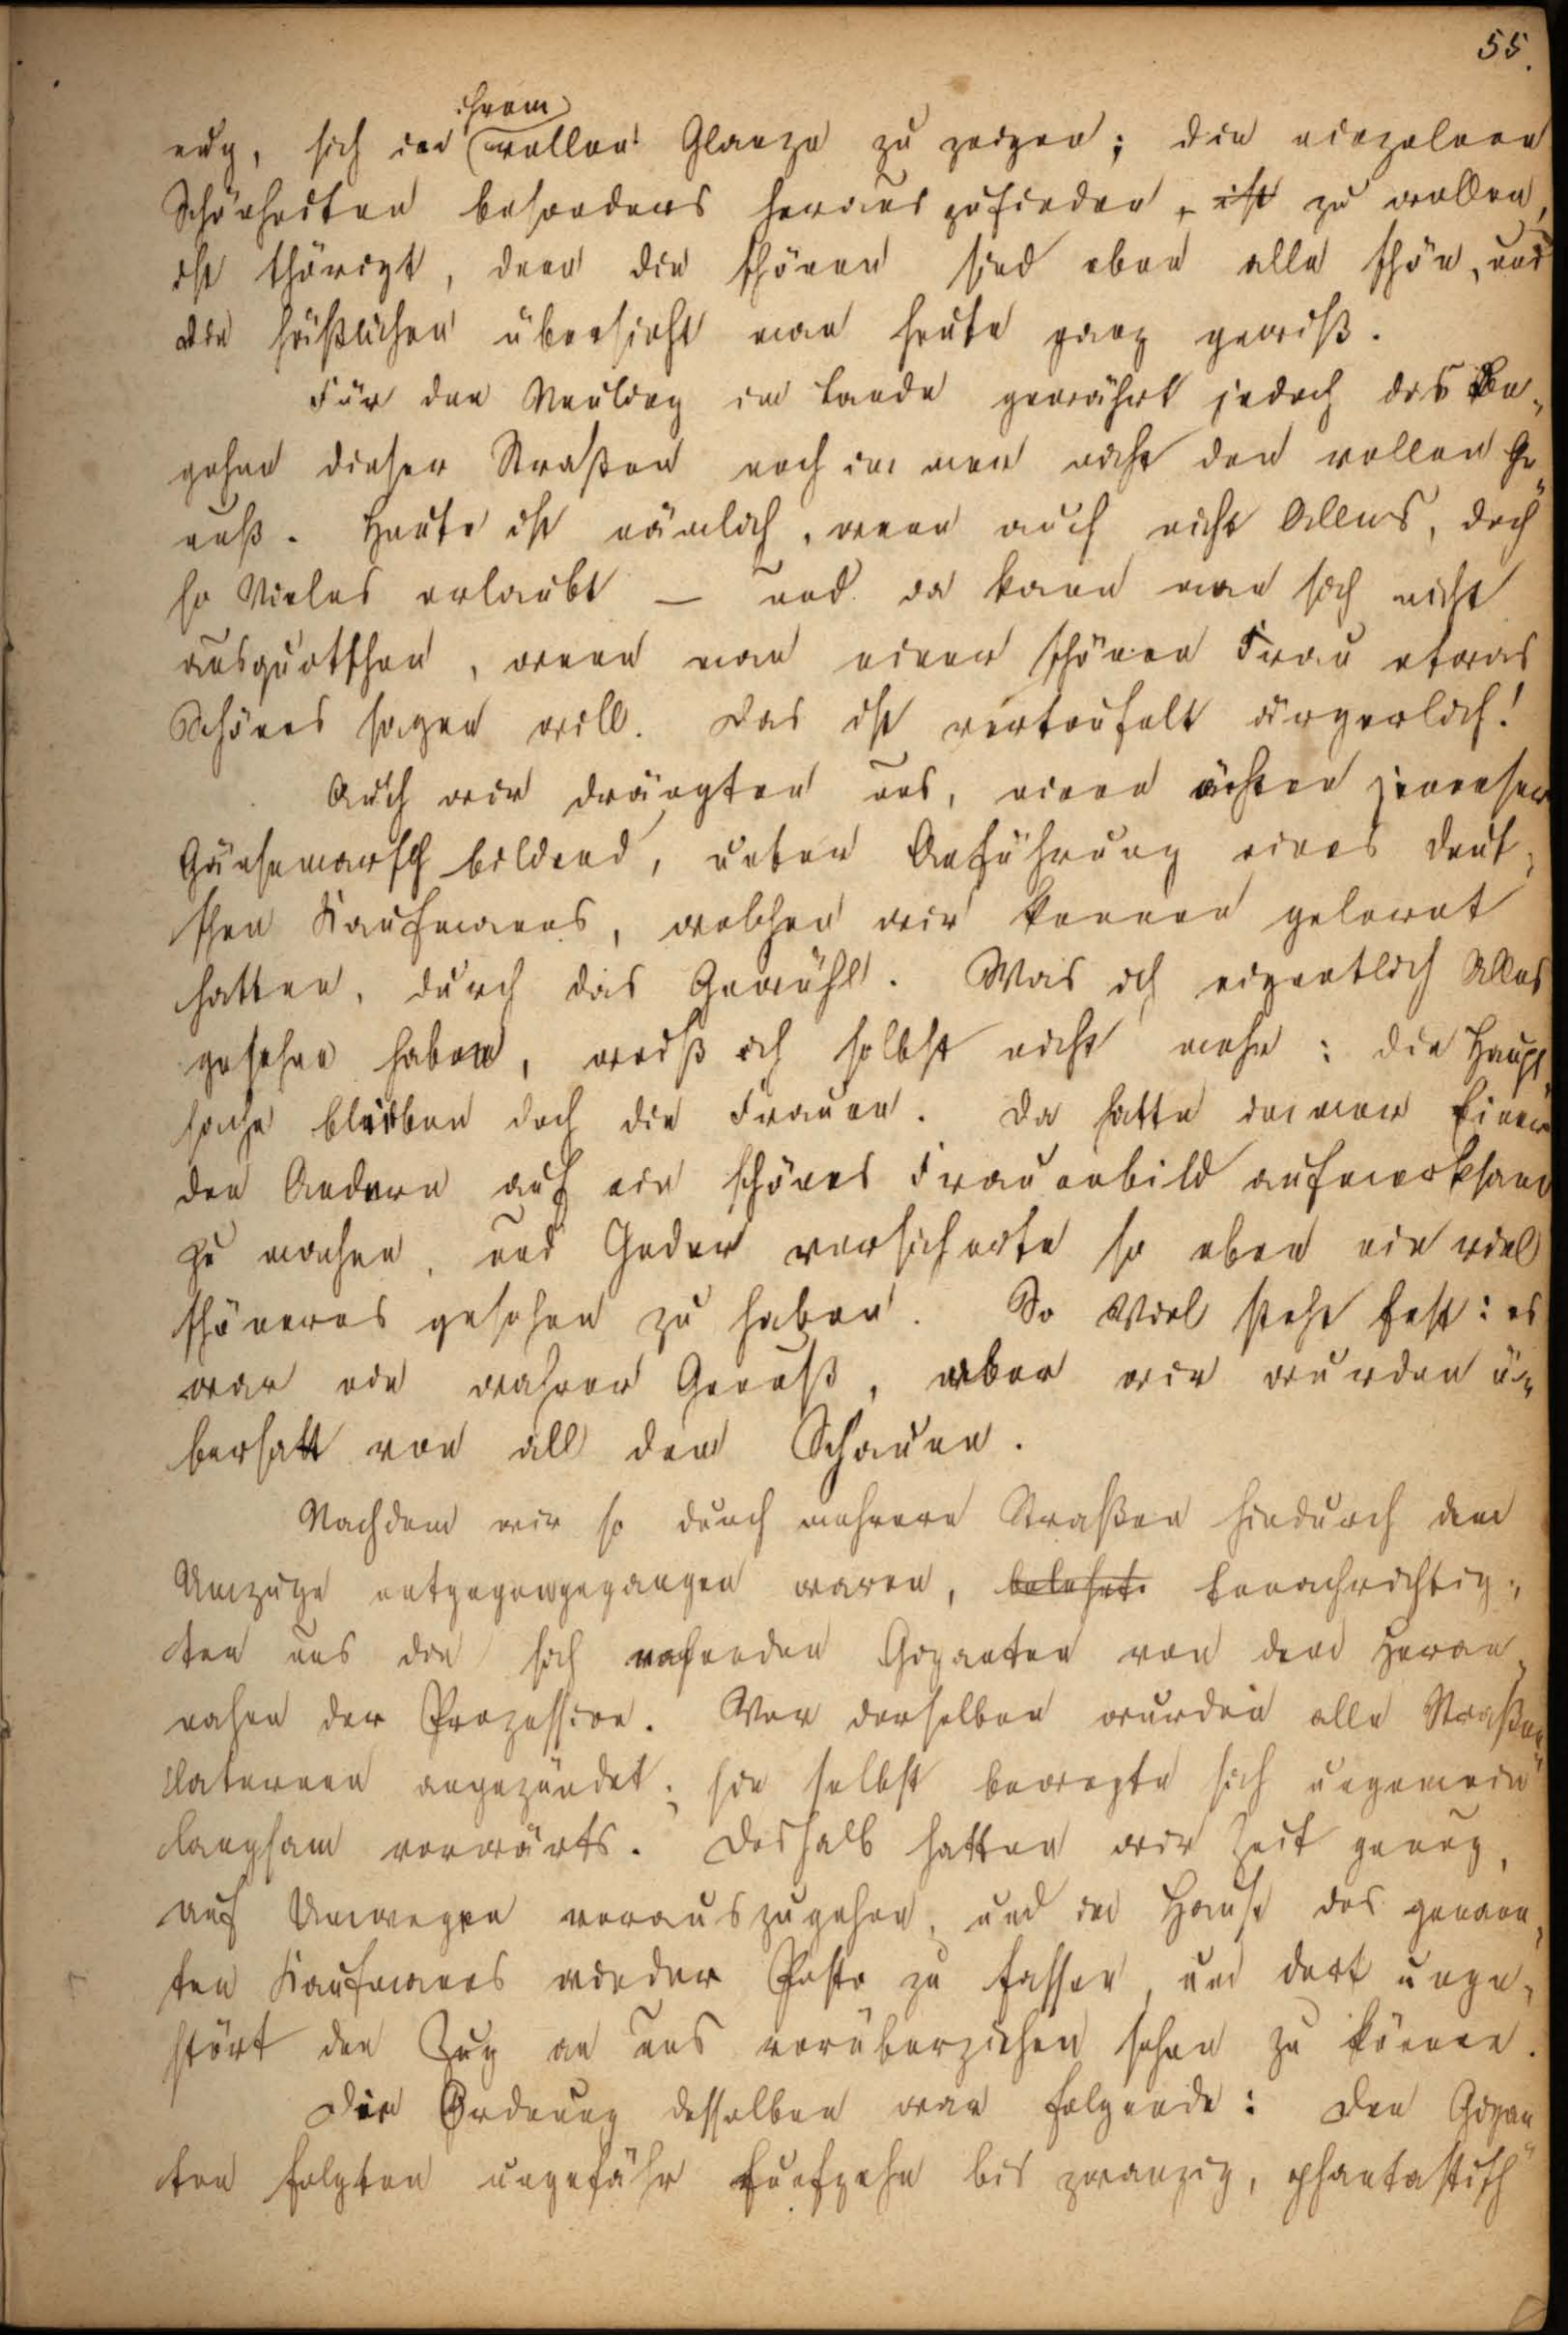 55.
ihrem
nug, sich in vollen Glanze zu zeigen; die einzelnen
Schönheiten besonders herauszufinden, ist zu wollen,
ist thöricht, denn die schönen sind eben alle schön, und
die häßlichen übersieht man heute ganz gewiß.
Für den Neuling im Lande gewährt jedoch das Be-
gehen dieser Straßen noch immer nicht den vollen Ge-
nuß. Heute ist nämlich, wenn auch nicht Alles, doch
so Vieles erlaubt — und da kann man sich nicht
ausquetschen, wenn man einer schönen Frau etwas
Schönes sagen will. Das ist verteufelt ärgerlich!
Auch wir drängten uns, einen ächten jenenser
Gänsemarsch bildend, unter Anführung eines deut-
schen Kaufmanns, welchen wir kennen gelernt
hatten, durch das Gewühl. Was ich eigentlich Alles
gesehen habe, weiß ich selbst nicht mehr: die Haupt-
sache blieben doch die Frauen. Da hatte immer Einer
den Andern auf ein schönes Frauenbild aufmerksam
zu machen, und Jeder versicherte so eben ein viel
schöneres gesehen zu haben. So Viel steht fest: es
war ein wahrer Genuß, aber wir wurden ü-
bersatt von all dem Schauen.
Nachdem wir so durch mehrere Straßen hindurch dem
Umzuge entgegengegangen waren, belehrt benachrichtig-
ten uns die sich nahenden Giganten von dem Heran-
nahen der Prozession. Vor derselben wurden alle Straßen-
laternen angezündet; sie selbst bewegte sich ungemein
langsam vorwärts. Deshalb hatten wir Zeit genug,
auf Umwegen vorauszugehen, und im Hause des genann-
ten Kaufmanns wieder Posto zu fassen, um dort unge-
stört den Zug an uns vorüberziehen sehen zu können.
Die Ordnung desselben war folgende: Den Gigan-
ten folgten ungefähr fünfzehn bis zwanzig, phantastisch